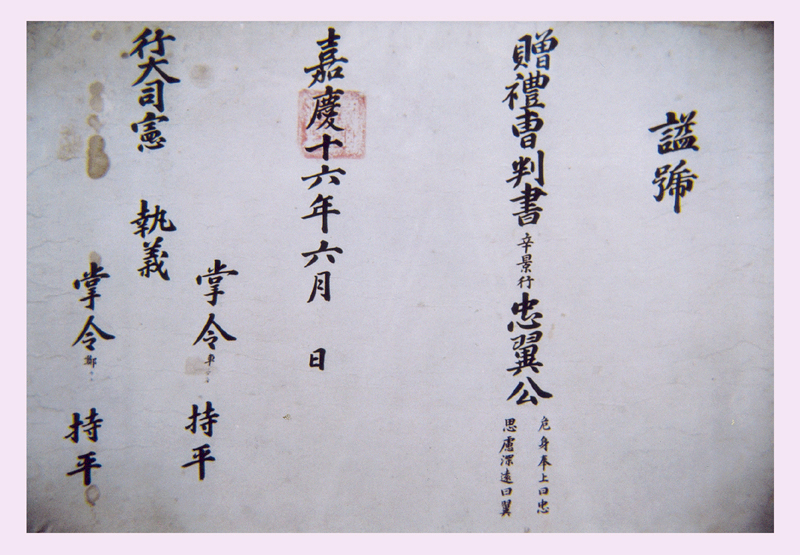 諡號
贈禮曹判書辛景行忠翼公 危身奉上曰忠
思慮深遠曰翼
嘉慶十六年六月 日
掌令 持平
行大司憲 執義
掌令鄭 持平